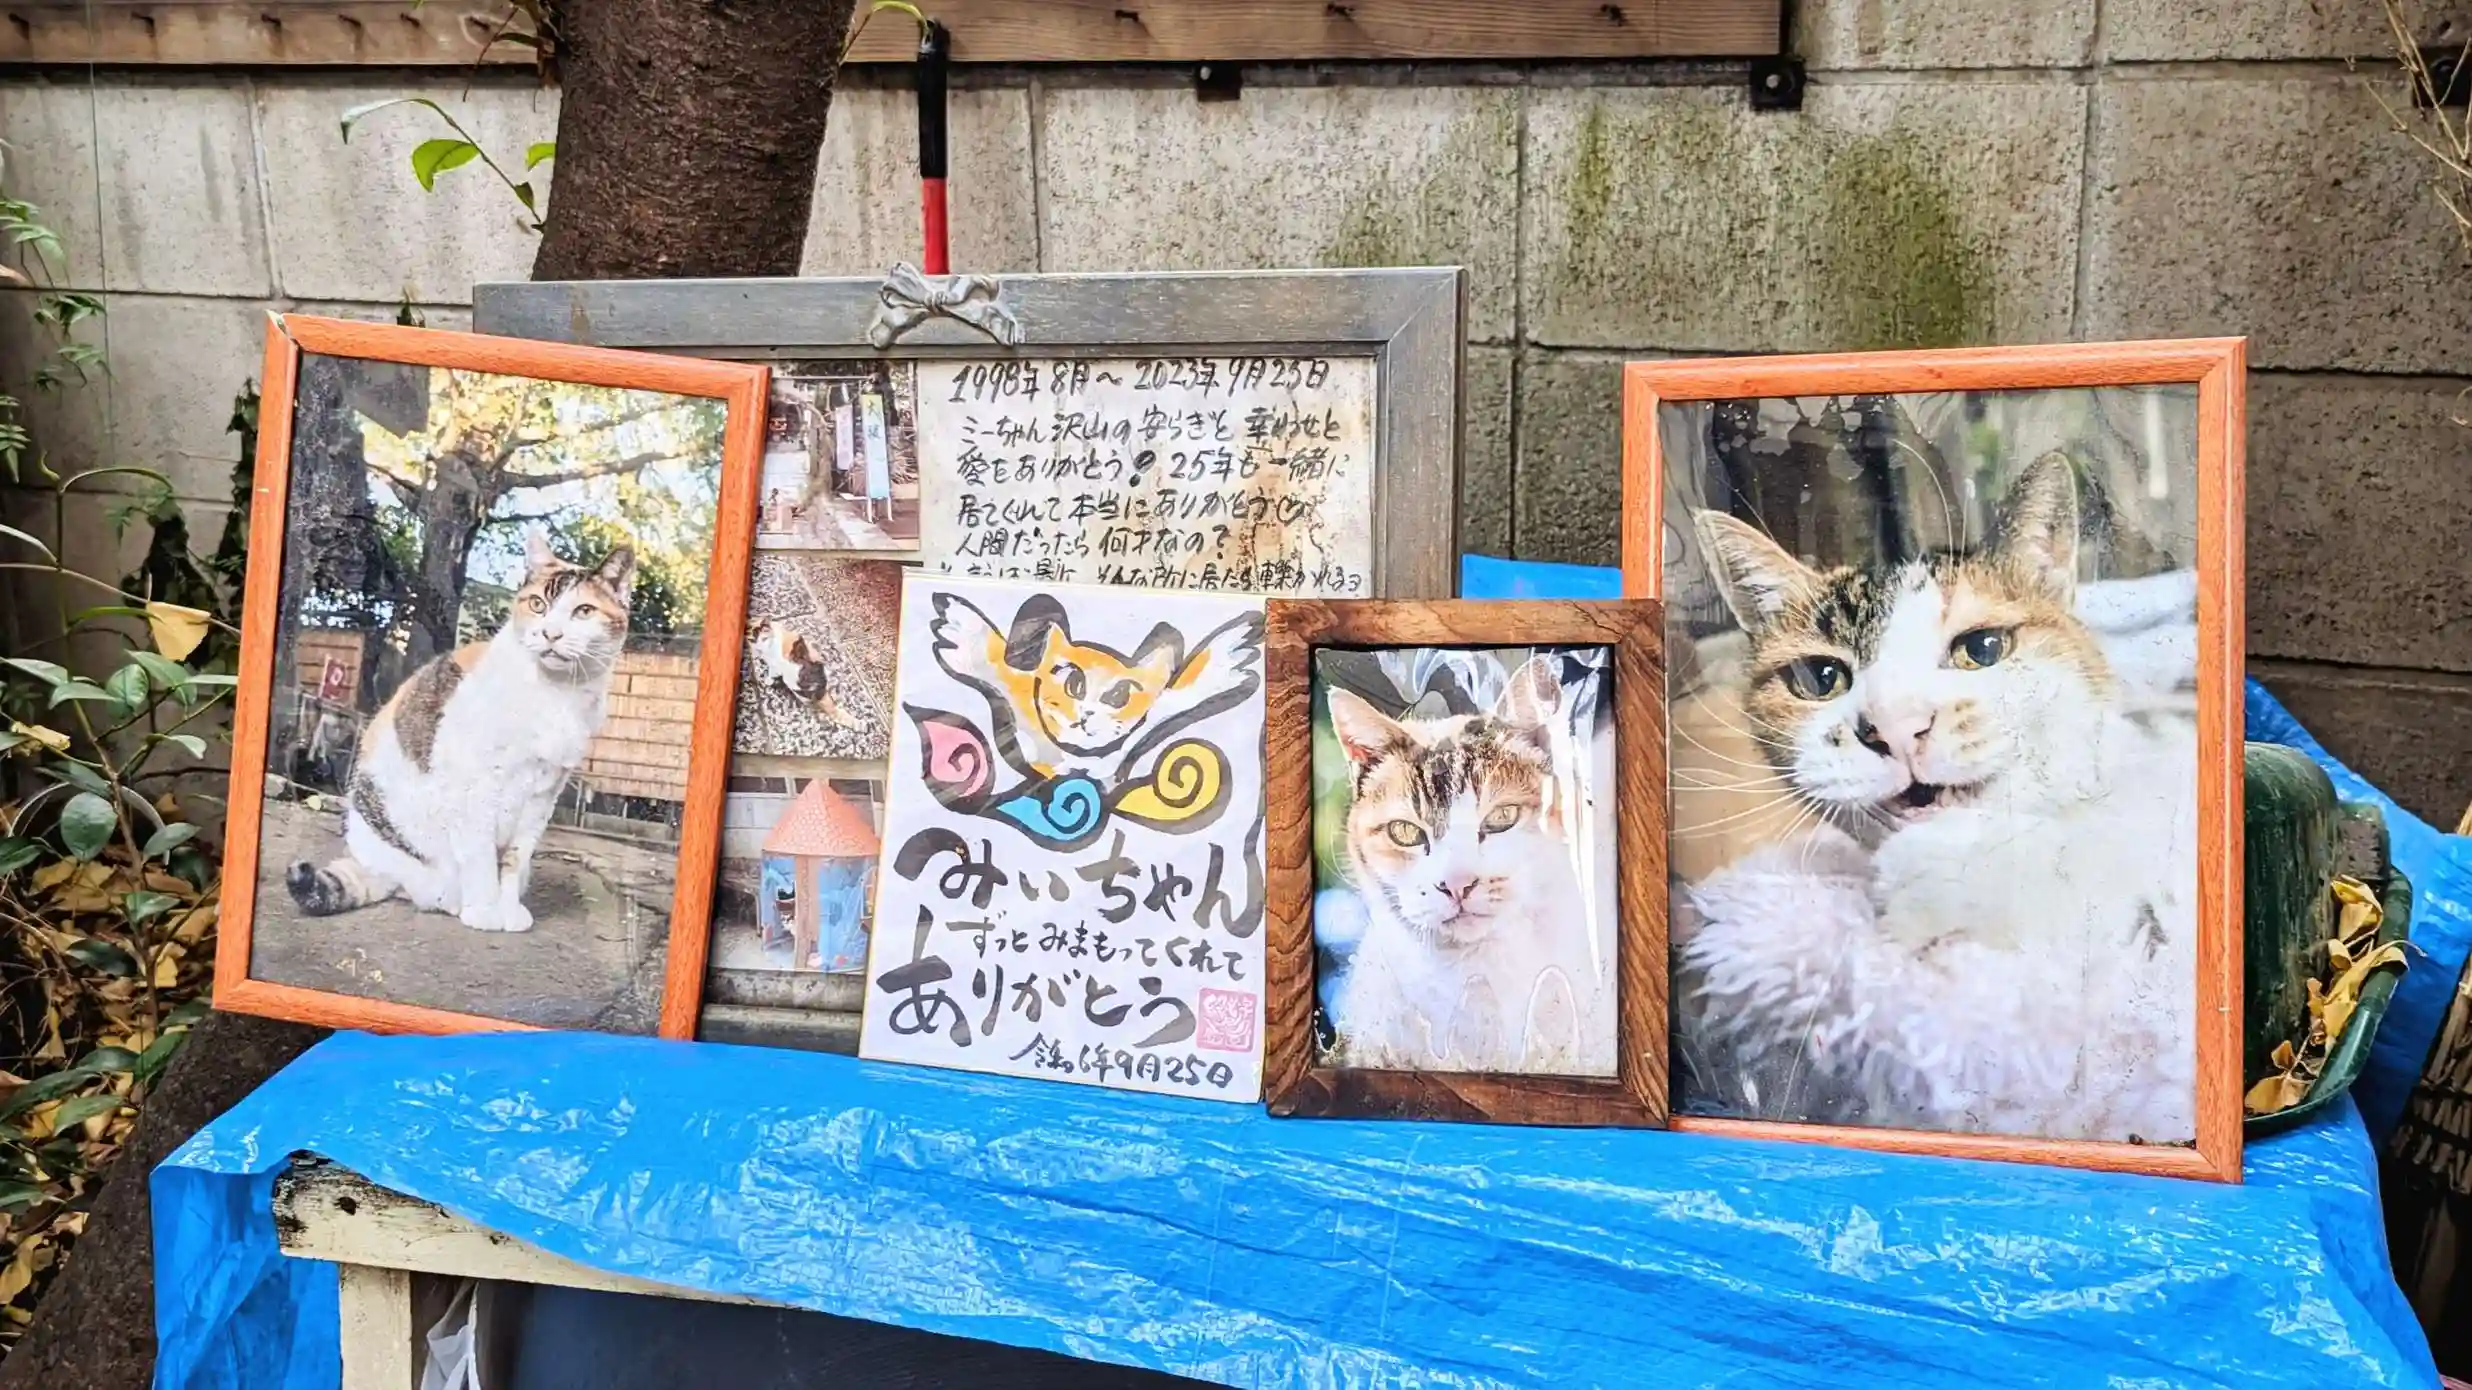 1998年8月～2023年9月25日
ミーちゃん沢山の安らぎと幸わせと
愛をありがとう! 25年も一緒に
居てくれて本当にありがとう
人間だったら何才なの?
そんな所に居たら轢かれるヨ
みぃちゃん
ずっとみまもってくれて
ありがとう
令和6年9月25日